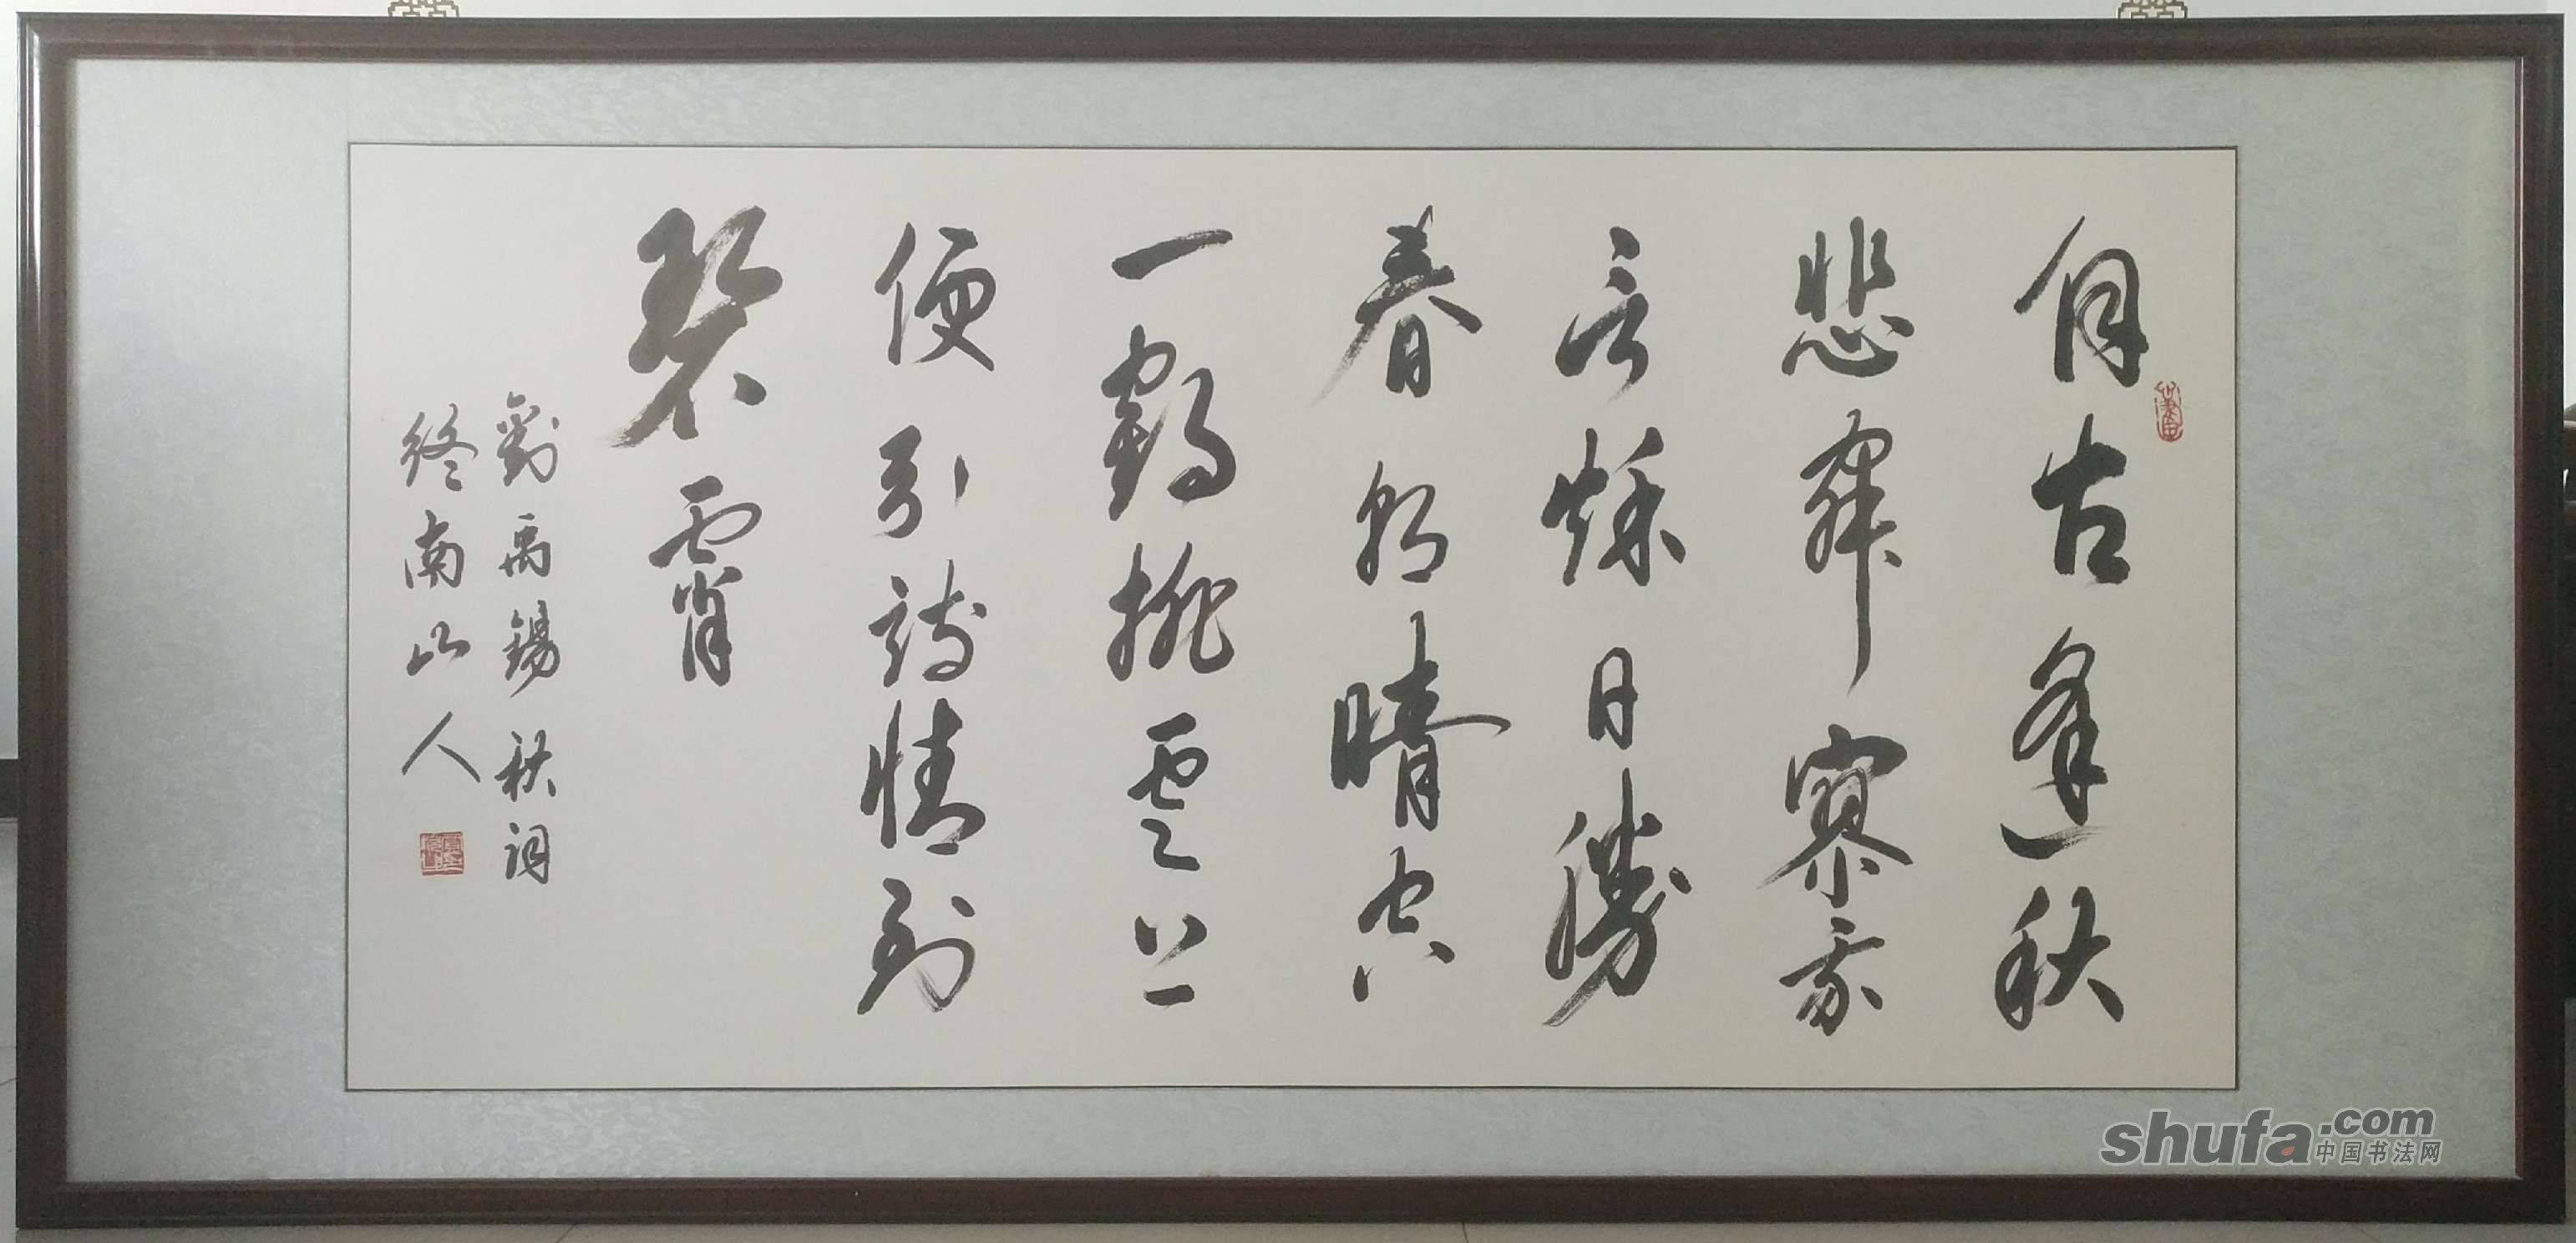 自古逢秋
悲寂寥我
言秋日勝
春朝晴空
一鶴排雲上
便引詩情到
碧霄
劉禹錫秋詞
終南山人
shufa.com
中国书法网